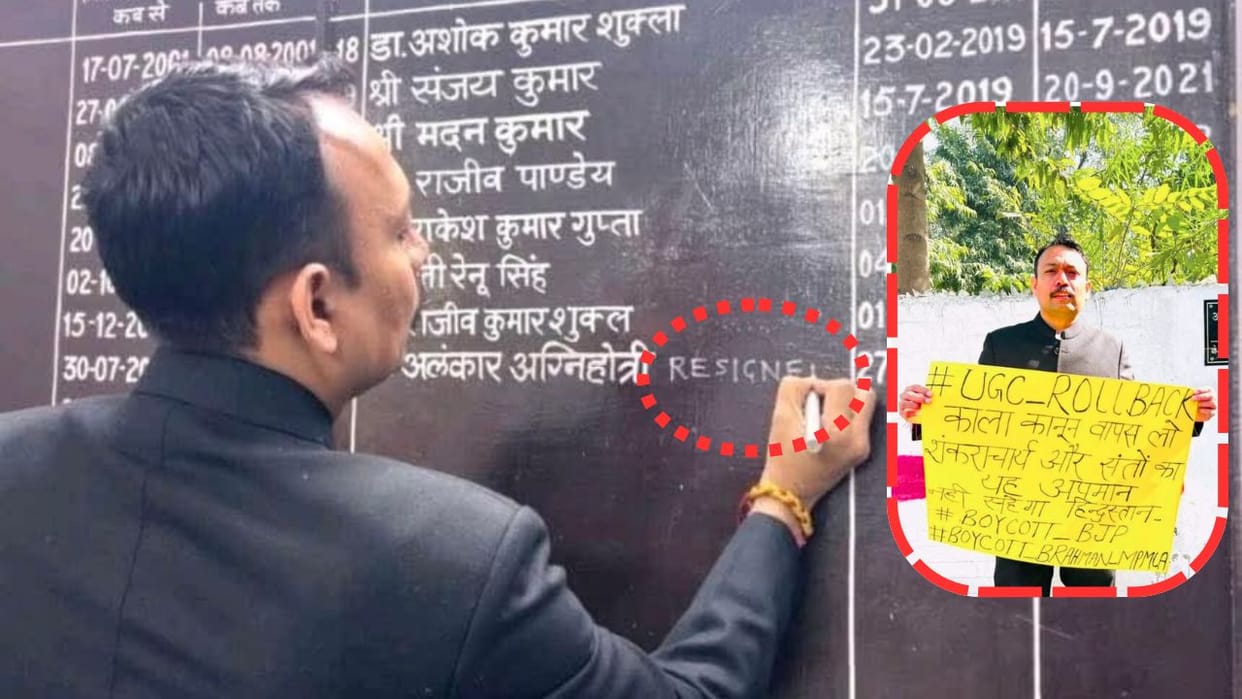 कब से
कब तक
17-07-2001 08-08-2001 18 डा.अशोक कुमार शुक्ला 23-02-2019 15-7-2019
श्री संजय कुमार 15-7-2019 20-9-2021
मदन कुमार
राजीव पाण्डेय
20 राकेश कुमार गुप्ता 01
02-1 रेनू सिंह 04
15-12-20 राजीव कुमार शुक्ल 01
30-07-20 अलंकार अग्निहोत्री RESIGNE 27
#UGC_ROLLBACK
काला कानून वापस लो
शंकराचार्य और संतों का
यह अपमान
नहीं सहेगा हिन्दुस्तान-
#BOYCOTT_BJP
#BOYCOTT_BRAHMAN_MPMLA